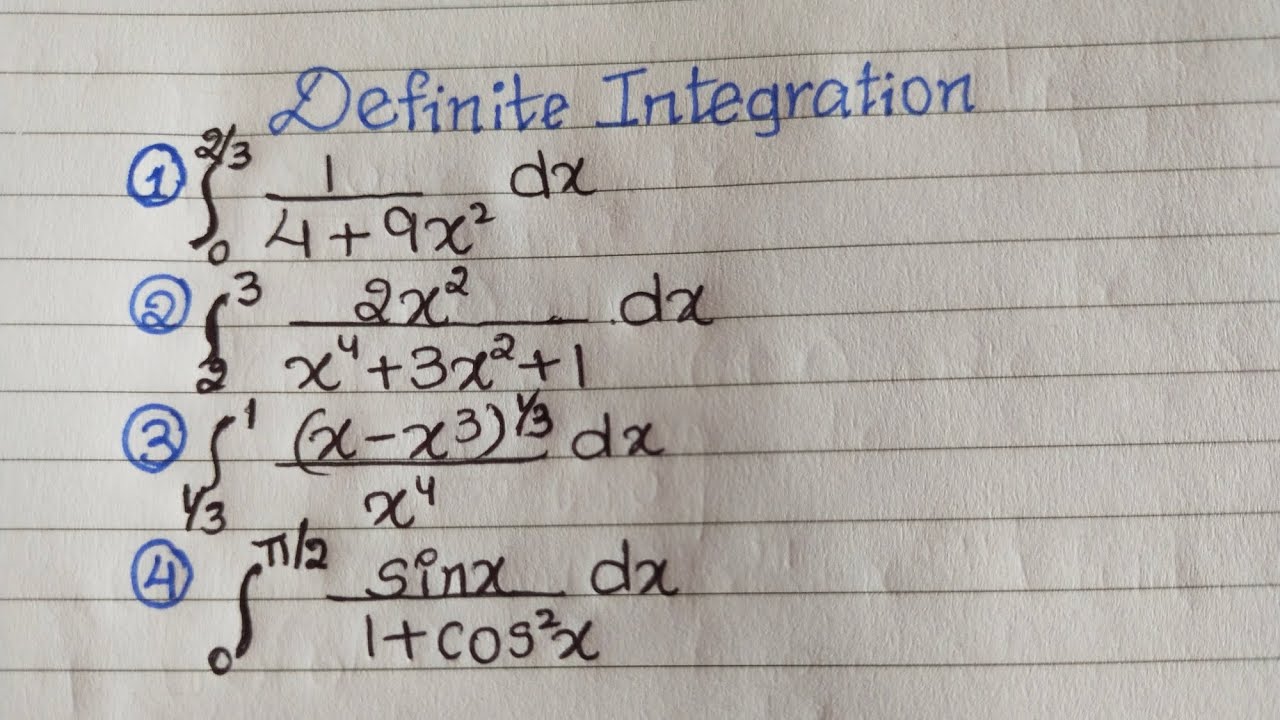 Definite Integration
① ∫₀^{2/3} 1/(4+9x²) dx
② ∫₂^3 2x²/(x⁴+3x²+1) dx
③ ∫_{1/3}^1 (x-x³)^{1/3}/x⁴ dx
④ ∫₀^{π/2} sinx/(1+cos²x) dx